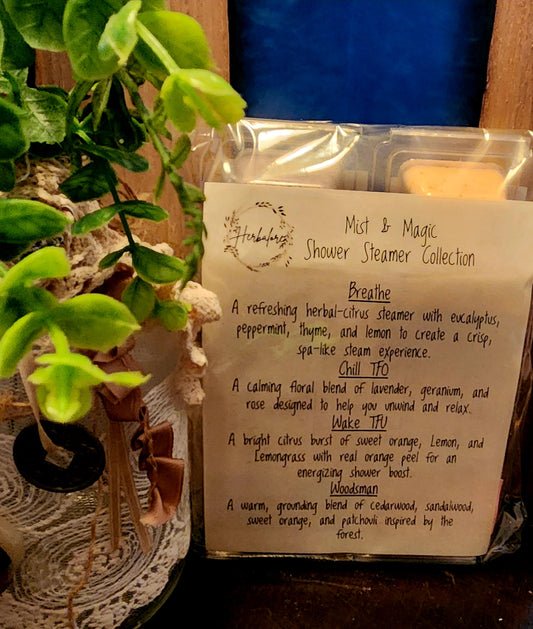 Herbalore
Mist & Magic
Shower Steamer Collection
Breathe
A refreshing herbal-citrus steamer with eucalyptus,
peppermint, thyme, and lemon to create a crisp,
spa-like steam experience.
Chill TFO
A calming floral blend of lavender, geranium, and
rose designed to help you unwind and relax.
Wake TFU
A bright citrus burst of sweet orange, Lemon, and
Lemongrass with real orange peel for an
energizing shower boost.
Woodsman
A warm, grounding blend of cedarwood, sandalwood,
sweet orange, and patchouli inspired by the
forest.